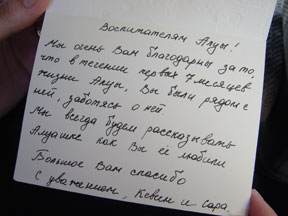 Воспитателям Алуы!
Мы очень Вам благодарны за то,
что в течение первых 7 месяцев
жизни Алуы, Вы были рядом с
ней, заботясь о ней.
Мы всегда будем рассказывать
Алуашке как Вы её любили.
Большое Вам спасибо
С уважением, Кевин и Сара